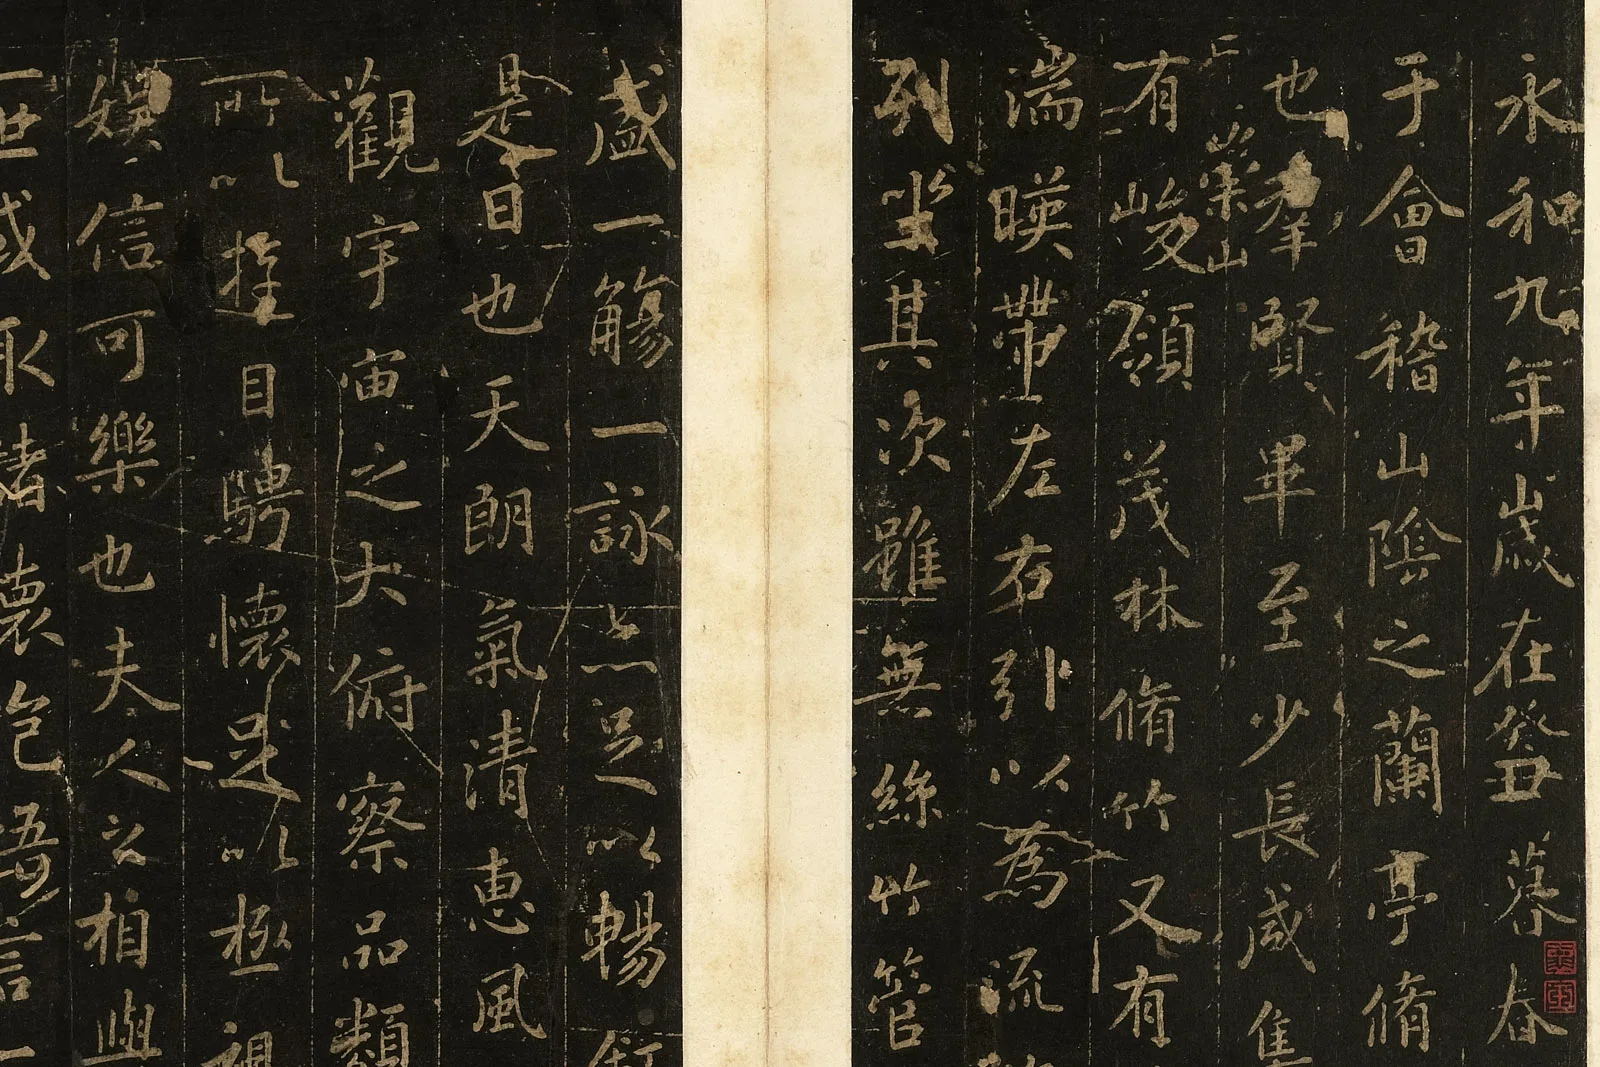 永和九年歲在癸丑暮春
于會稽山陰之蘭亭脩
也羣賢畢至少長咸集
崇山
有峻領茂林脩竹又有
湍暎帶左右引以為流
列坐其次雖無絲竹管
盛一觴一詠亦足以暢叙
是日也天朗氣清惠風
觀宇宙之大俯察品類
所以遊目騁懷足以極視
娛信可樂也夫人之相與
一世或取諸懷抱悟言一